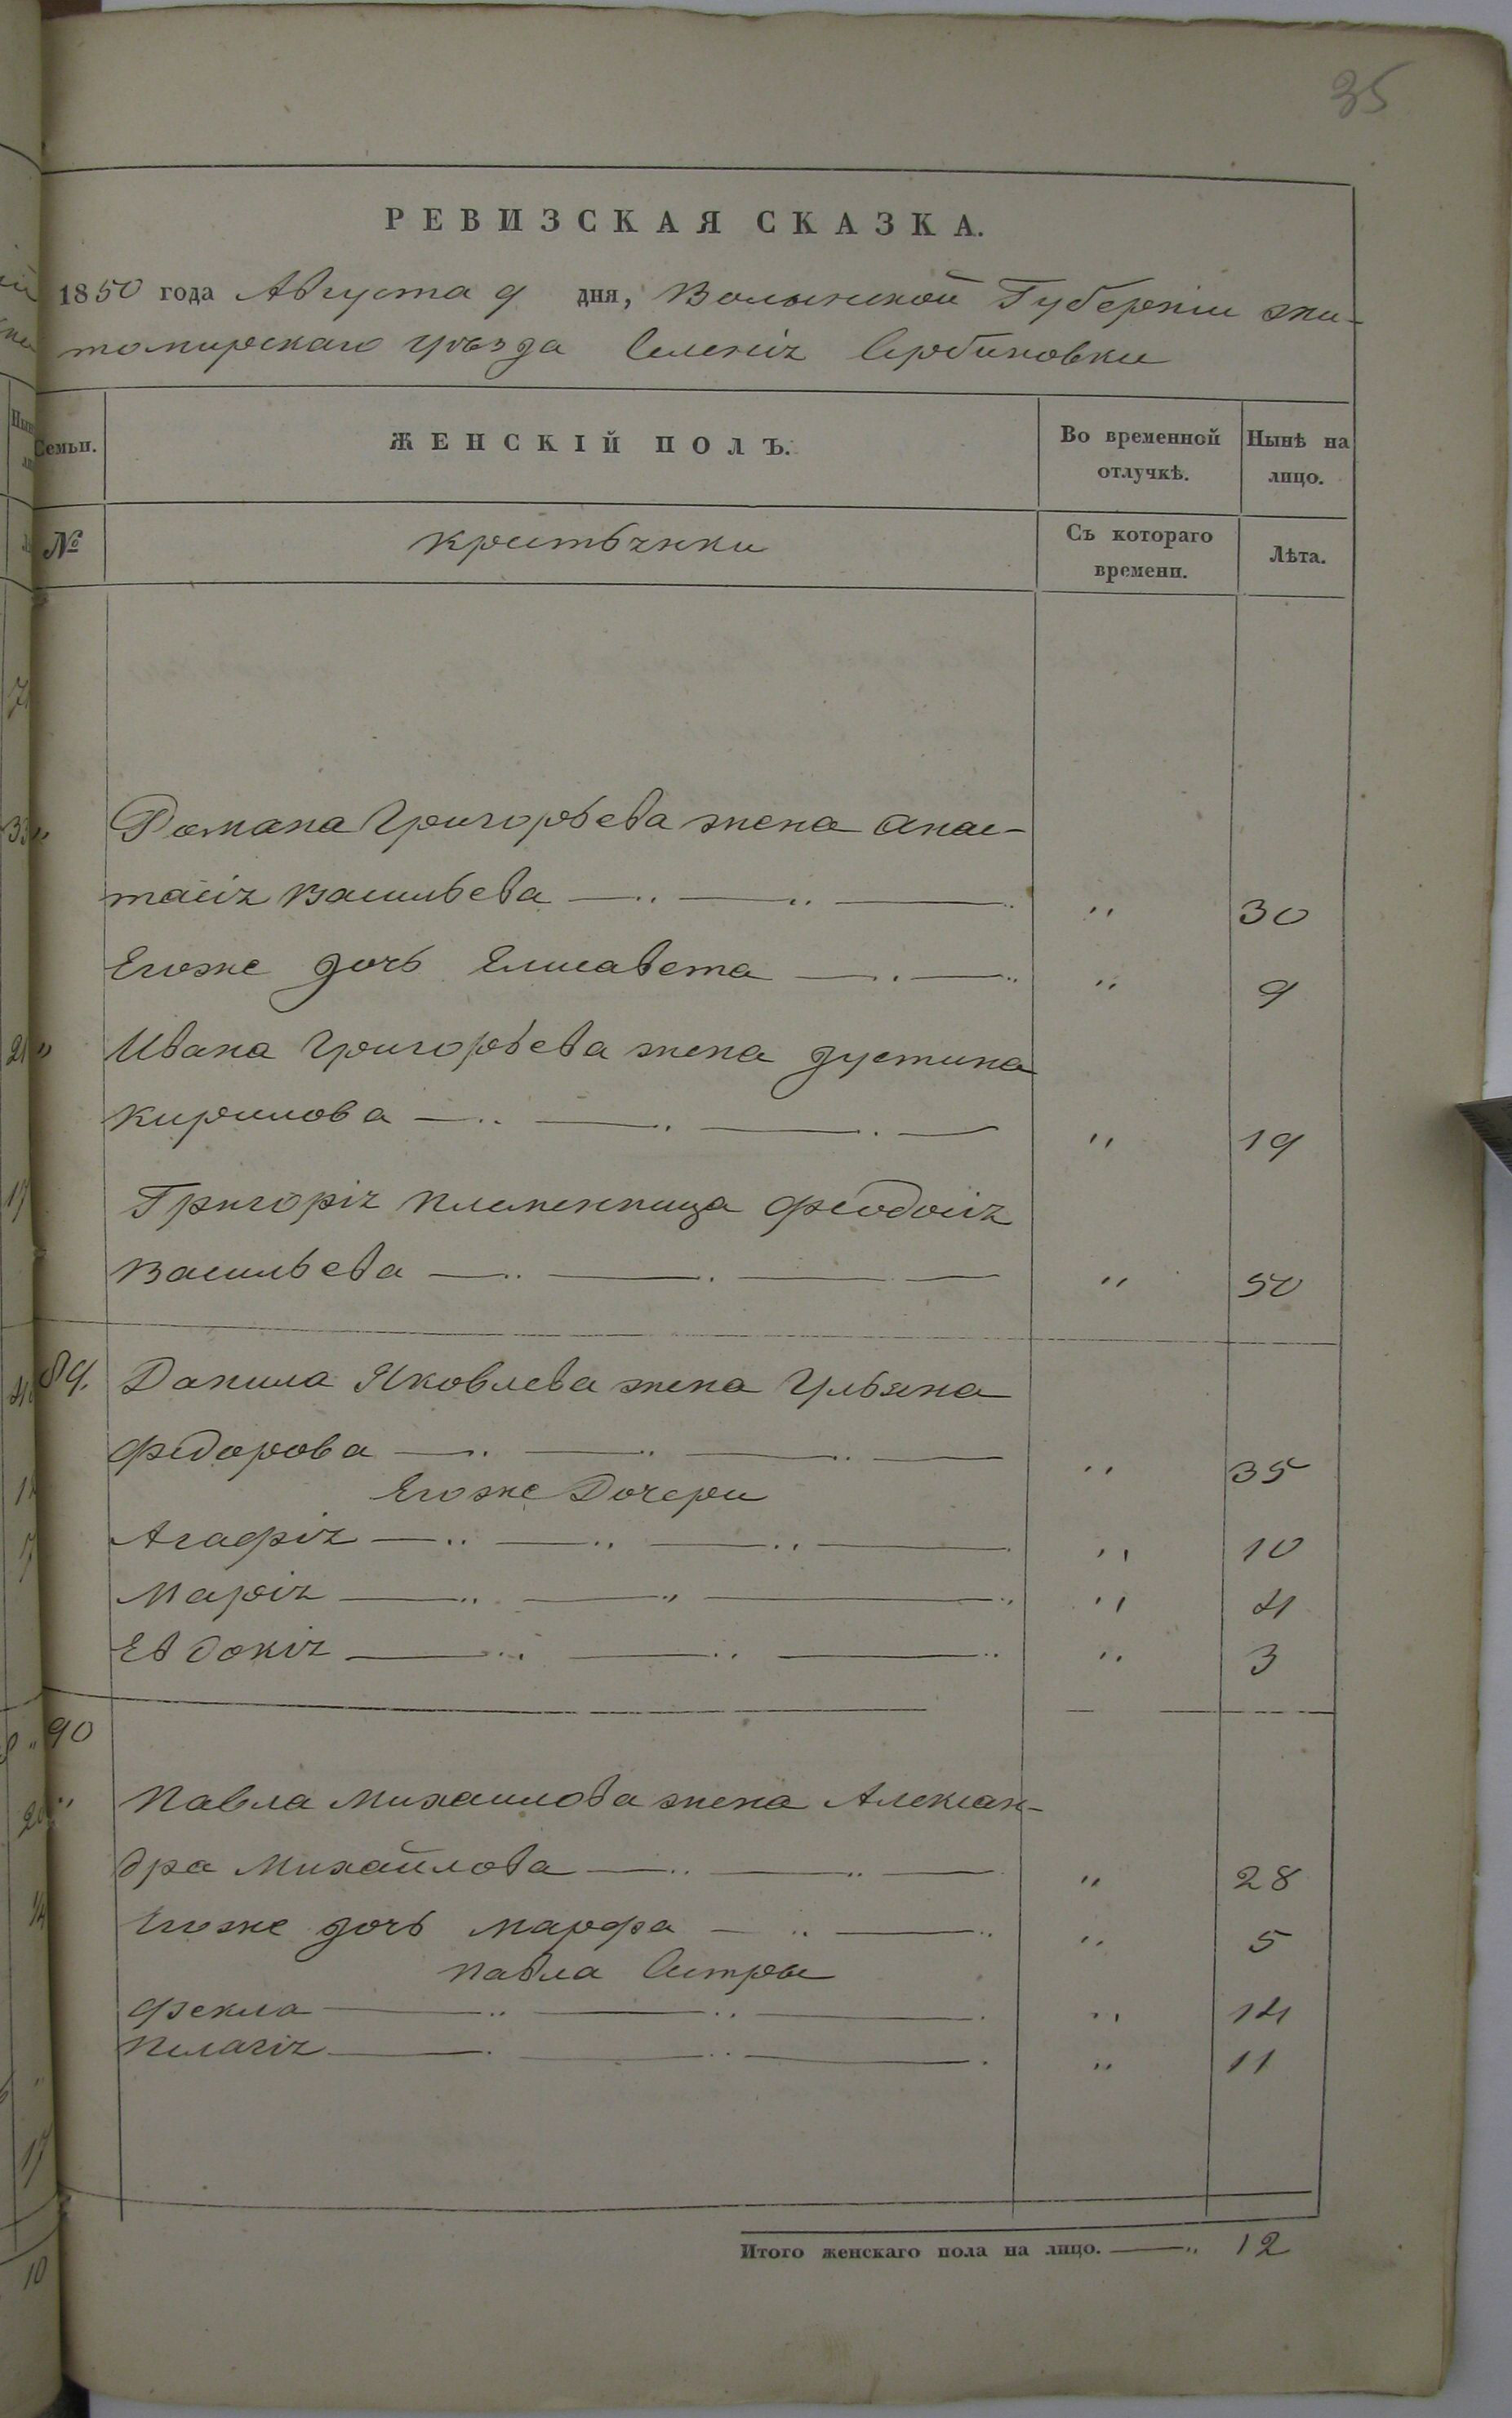 35
РЕВИЗСКАЯ СКАЗКА.
1850 года Августа 9 дня, Волынской Губерніи жи-
томирскаго уѣзда Селенія Сербиновки
Семьи.
ЖЕНСКІЙ ПОЛЪ.
Во временной отлучкѣ.
Нынѣ на лицо.
№
крестьянки
Съ котораго времени.
Лѣта.
Романа Григорьева жена Анас-
тасія Васильева " 30
Егоже дочь Елисавета " 9
Ивана Григорьева жена Густина
Кирилова " 19
Григорія племенница Феодосія
Васильева " 50
89. Данила Яковлева жена Ульяна
Федорова " 35
Егоже Дочери
Агафія " 10
Марія " 4
Евдокія " 3
90
Павла Михаилова жена Алексан-
дра Михайлова " 28
Егоже дочь Марфа " 5
Павла Сестры
Фекла " 14
Пелагія " 11
Итого женскаго пола на лицо. 12